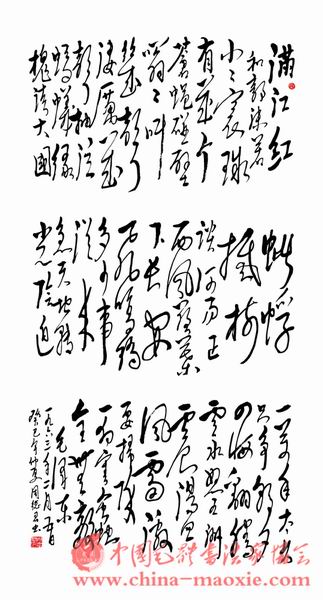 满江红
和郭沫若
小小寰球
有几个
苍蝇碰壁
嗡嗡叫
几声
凄厉几
声抽泣
蚂蚁缘
槐夸大国
蚍蜉
撼树
谈何易正
西风落叶
下长安
飞鸣镝
多少事
从来
急天地转
光阴迫
一万年太久
只争朝夕
四海翻腾
云水怒五洲
震荡
风雷激
要扫除
一切害人虫
全无敌
毛泽东
一九六三年一月九日
癸巳年仲夏周德书
中国毛体书法家协会
www.china-maoxie.com